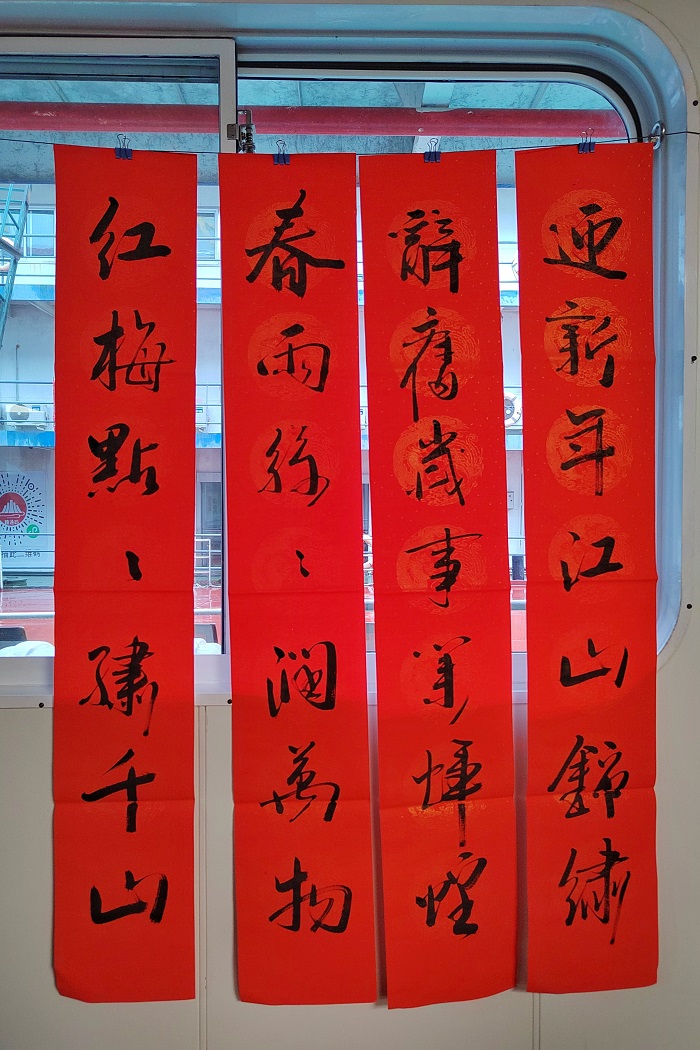 迎新年江山錦綉
辭舊歲事業煇煌
春雨絲々潤萬物
紅梅點々繡千山